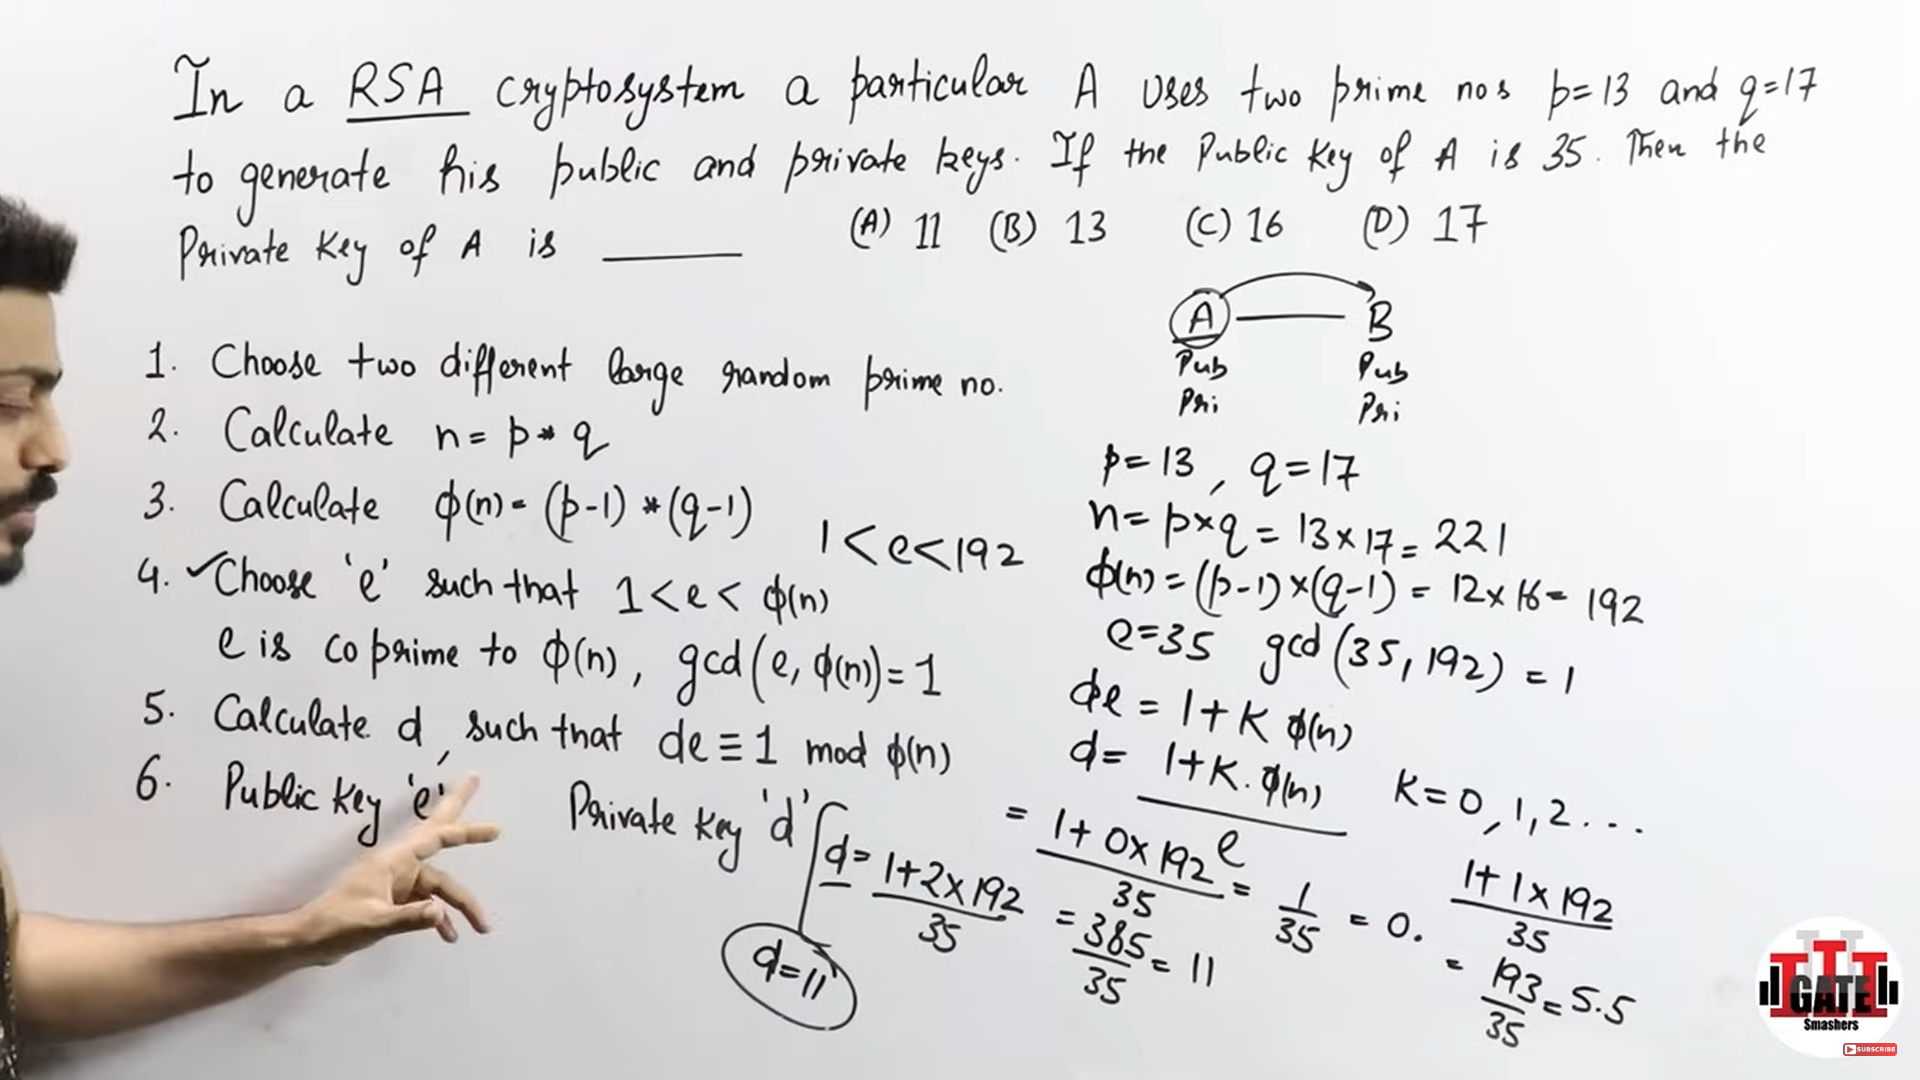 In a RSA cryptosystem a particular A uses two prime nos p=13 and q=17
to generate his public and private keys. If the Public Key of A is 35. Then the
Private Key of A is ______ (A) 11 (B) 13 (C) 16 (D) 17
A B
Pub Pub
Pri Pri
1. Choose two different large random prime no.
2. Calculate n = p * q
3. Calculate ϕ(n) = (p-1) * (q-1)
1 < e < 192
4. ✓Choose 'e' such that 1 < e < ϕ(n)
e is co prime to ϕ(n), gcd(e, ϕ(n)) = 1
5. Calculate d, such that de ≡ 1 mod ϕ(n)
6. Public Key 'e' Private Key 'd'
p = 13, q = 17
n = p×q = 13×17 = 221
ϕ(n) = (p-1)×(q-1) = 12×16 = 192
e=35 gcd(35, 192) = 1
de = 1+K ϕ(n)
d = 1+K.ϕ(n) / e K = 0, 1, 2 ...
= 1+0×192 / 35 = 1/35 = 0.
1+1×192 / 35
= 193/35 = 5.5
d = 1+2×192 / 35 = 385/35 = 11
d=11
GATE
Smashers
SUBSCRIBE